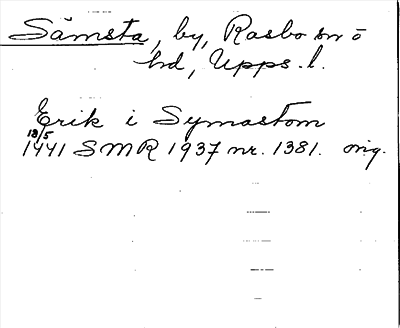 Sämsta, by, Rasbo sn o
hd, Upps. l.
Erik i Symastom
18/5
1441 SMR 1937 nr. 1381. orig.